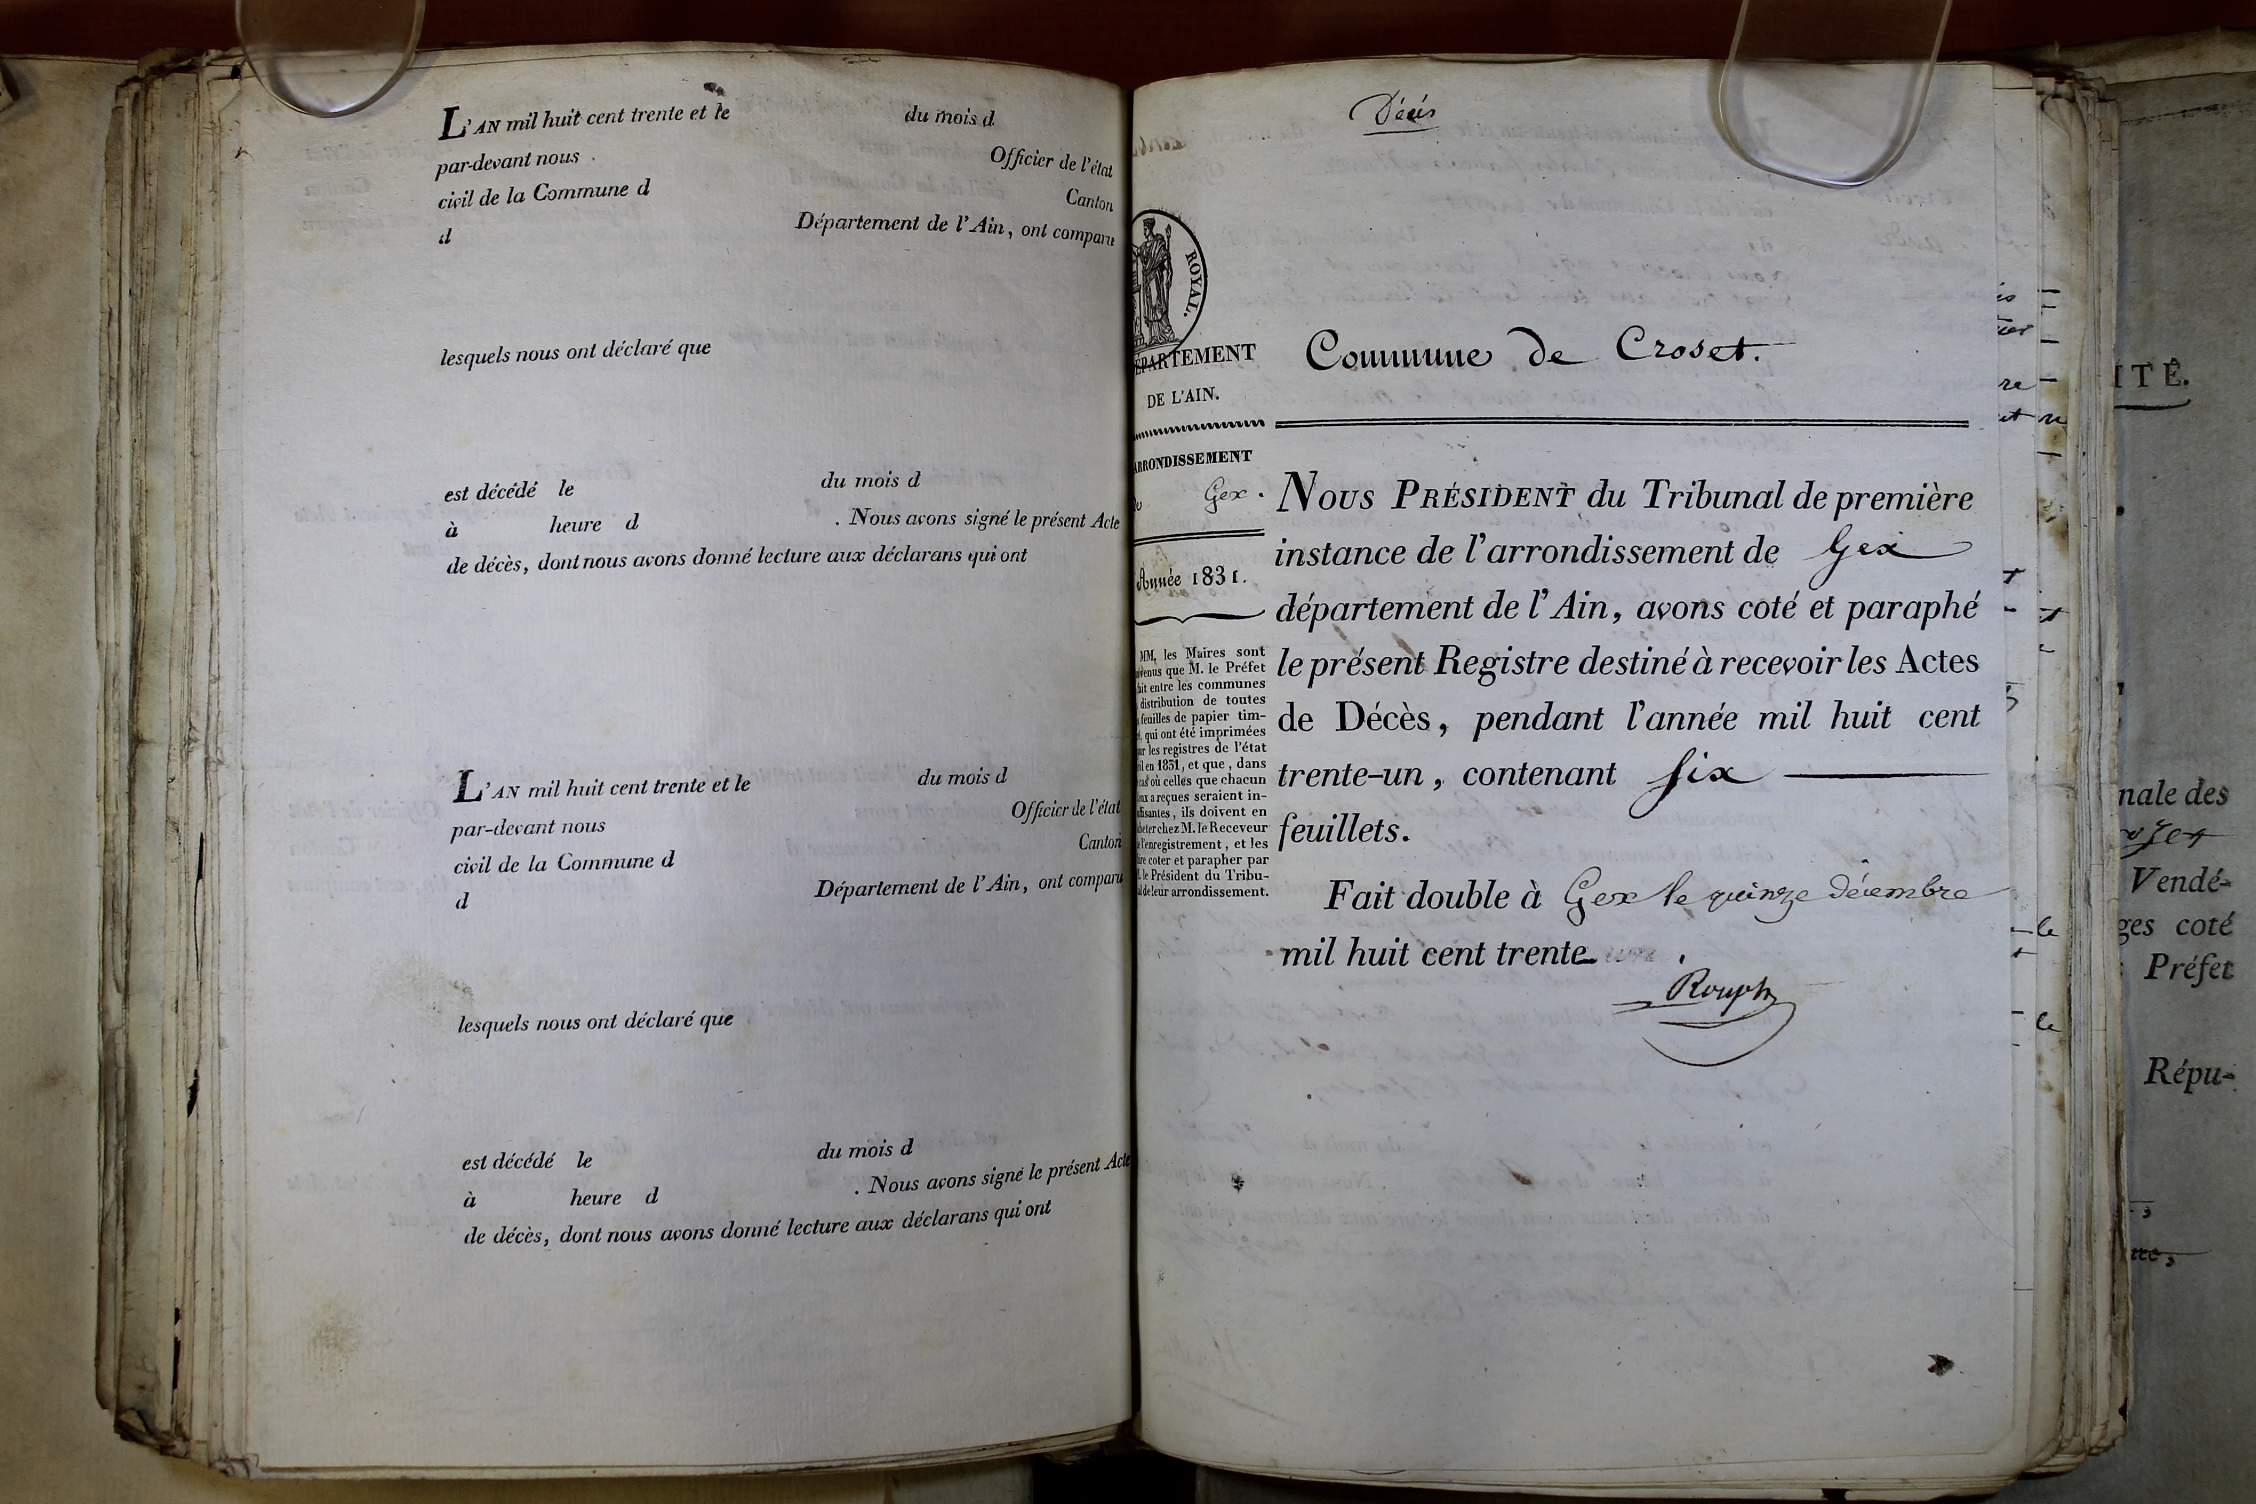 L'AN mil huit cent trente et le du mois d
par-devant nous Officier de l'état
civil de la Commune d Canton
d Département de l'Ain, ont comparu
lesquels nous ont déclaré que
est décédé le du mois d
à heure d . Nous avons signé le présent Acte
de décès, dont nous avons donné lecture aux déclarans qui ont
L'AN mil huit cent trente et le du mois d
par-devant nous Officier de l'état
civil de la Commune d Canton
d Département de l'Ain, ont comparu
lesquels nous ont déclaré que
est décédé le du mois d
à heure d . Nous avons signé le présent Acte
de décès, dont nous avons donné lecture aux déclarans qui ont
Décès
ROYAL.
DÉPARTEMENT
DE L'AIN.
ARRONDISSEMENT
Gex.
Année 1831.
MM. les Maires sont
venus que M. le Préfet
fait entre les communes
distribution de toutes
feuilles de papier tim-
qui ont été imprimées
les registres de l'état
en 1831, et que, dans
cas où celles que chacun
a reçues seraient in-
ffisantes, ils doivent en
cheter chez M. le Receveur
l'enregistrement, et les
coter et parapher par
le Président du Tribu-
de leur arrondissement.
Commune de Croset.
NOUS PRÉSIDENT du Tribunal de première
instance de l'arrondissement de Gex
département de l'Ain, avons coté et paraphé
le présent Registre destiné à recevoir les Actes
de Décès, pendant l'année mil huit cent
trente-un, contenant six
feuillets.
Fait double à Gex le quinze décembre
mil huit cent trente
Rouph
ITÉ.
nale des
Vendé-
ges coté
Préfet
Répu-